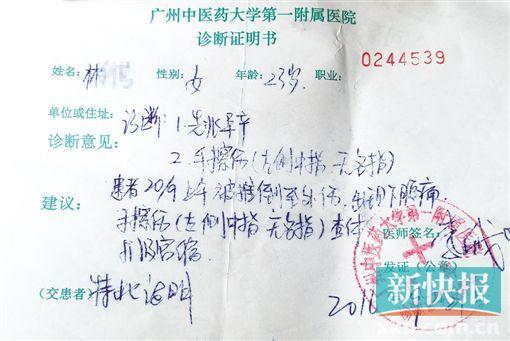 广州中医药大学第一附属医院
诊断证明书
0244539
姓名: 林 性别: 女 年龄: 23岁 职业:
单位或住址:
诊断意见: 诊断: 1.先兆早产
2.手擦伤(左侧中指 无名指)
建议: 患者20/9上午被推倒至外伤, 出现下腹痛
手擦伤(左侧中指 无名指) 查体
扪及宫缩
医师签名:
发证(公章)
(交患者) 特此证明
新快报